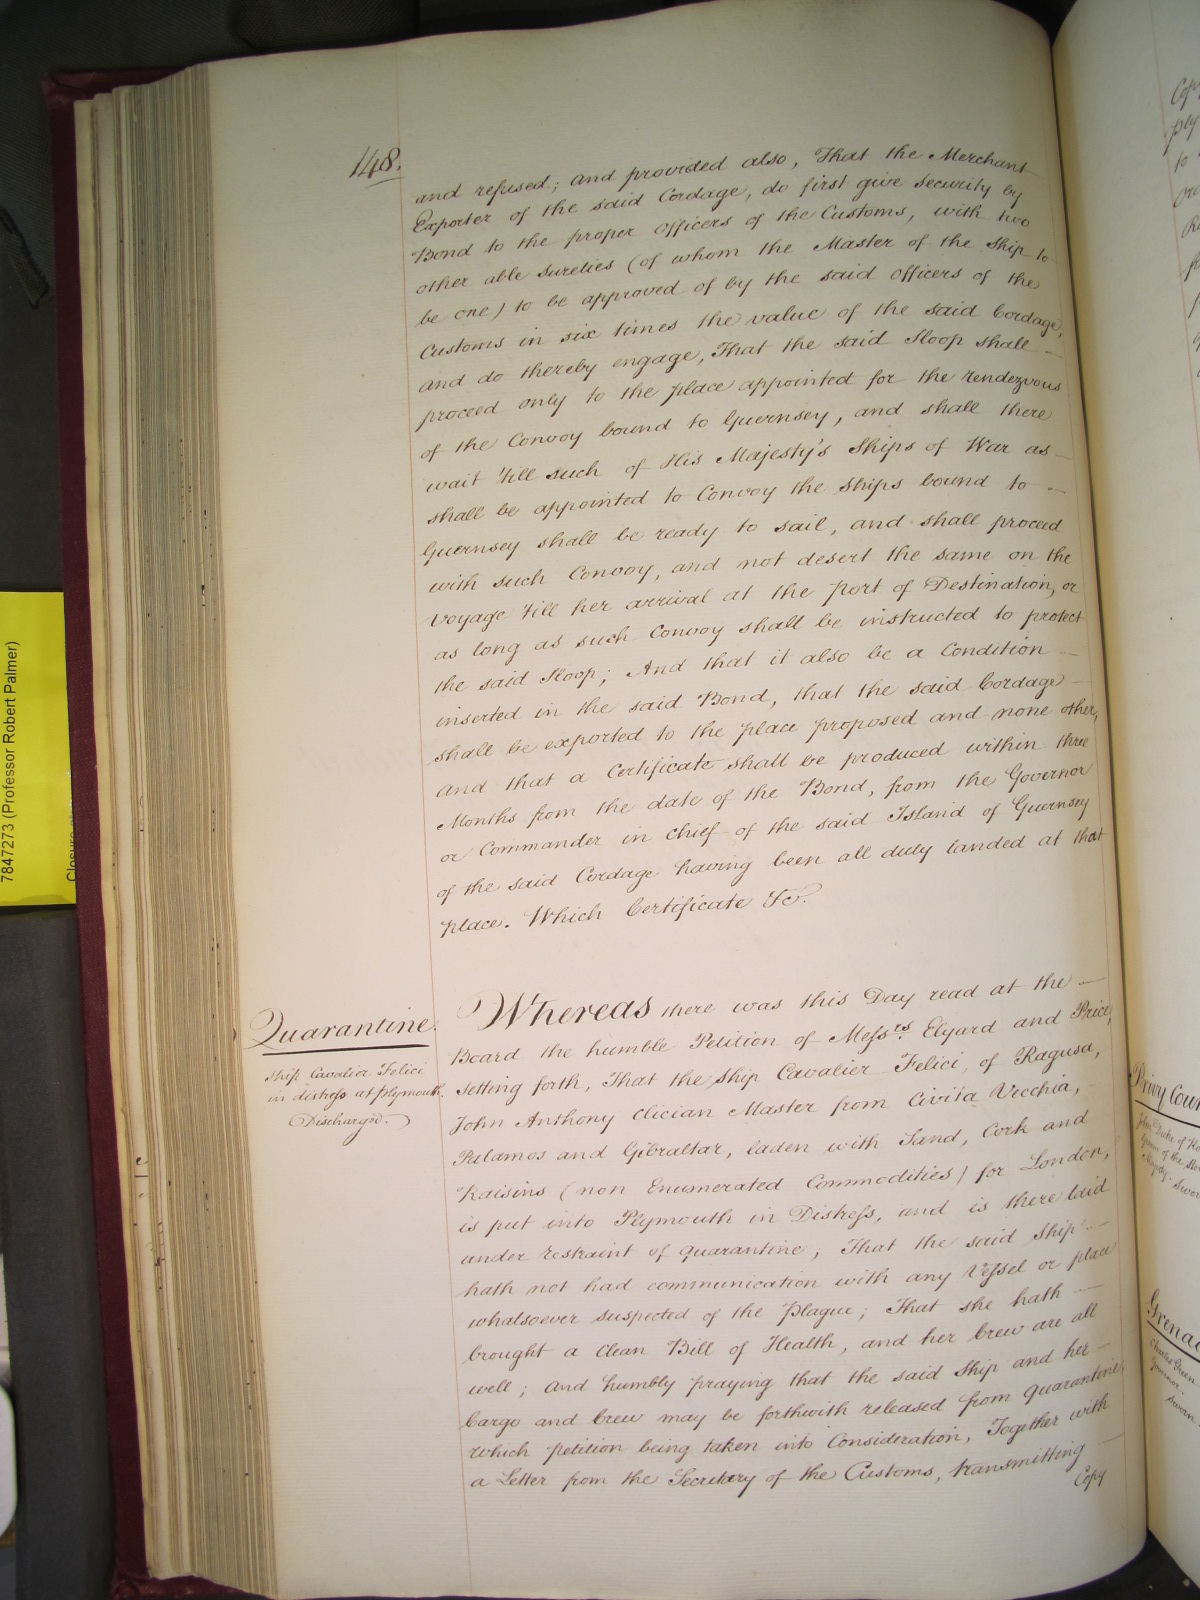 148.
and refused; and provided also, That the Merchant
Exporter of the said Cordage, do first give security by
Bond to the proper officers of the Customs, with two
other able sureties (of whom the Master of the Ship to
be one) to be approved of by the said officers of the
Customs in six times the value of the said Cordage,
and do thereby engage, That the said Sloop shall
proceed only to the place appointed for the rendezvous
of the Convoy bound to Guernsey, and shall there
wait 'till such of His Majesty's Ships of War as
shall be appointed to Convoy the ships bound to
Guernsey shall be ready to sail, and shall proceed
with such Convoy, and not desert the same on the
Voyage 'till her arrival at the port of Destination, or
as long as such Convoy shall be instructed to protect
the said Sloop; And that it also be a Condition
inserted in the said Bond, that the said Cordage
shall be exported to the place proposed and none other,
and that a Certificate shall be produced within three
Months from the date of the Bond, from the Governor
or Commander in chief of the said Island of Guernsey
of the said Cordage having been all duly landed at that
place. Which Certificate &c.
Quarantine.
Ship Cavalier Felici
in distress at Plymouth.
Discharged.
Whereas there was this Day read at the
Board the humble Petition of Messrs. Elyard and Price,
setting forth, That the ship Cavalier Felici, of Ragusa,
John Anthony Clician Master from Civita Vecchia,
Palamos and Gibraltar, laden with Sand, Cork and
Raisins (non Enumerated Commodities) for London,
is put into Plymouth in Distress, and is there laid
under restraint of quarantine; That the said Ship
hath not had communication with any Vessel or place
whatsoever suspected of the Plague; That she hath
brought a Clean Bill of Health, and her Crew are all
well; and humbly praying that the said Ship and her
Cargo and Crew may be forthwith released from quarantine,
which petition being taken into Consideration, Together with
a Letter from the Secretary of the Customs, transmitting
Copy
7847273 (Professor Robert Palmer)
Privy Coun
Grenad